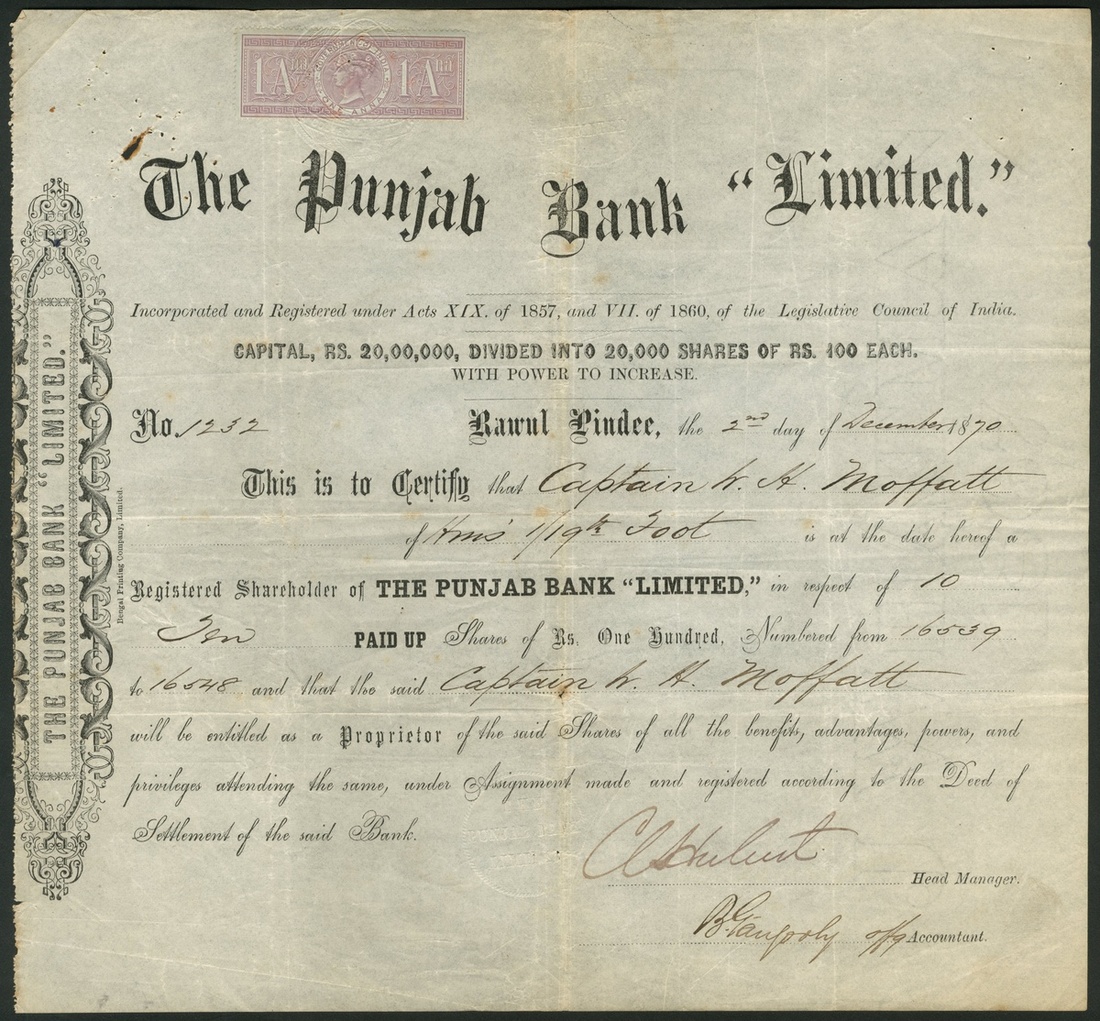 GOVERNMENT OF INDIA
1 And 1 And
ONE ANNA
The Punjab Bank “Limited.”
Incorporated and Registered under Acts XIX. of 1857, and VII. of 1860, of the Legislative Council of India.
CAPITAL, RS. 20,00,000, DIVIDED INTO 20,000 SHARES OF RS. 100 EACH.
WITH POWER TO INCREASE.
No. 1232 Rawul Pindee, the 2nd day of December 1870
This is to Certify that Captain W. H. Moffatt
of Hms' 1/19th Foot is at the date hereof a
Registered Shareholder of THE PUNJAB BANK “LIMITED,” in respect of 10
Ten PAID UP Shares of Rs. One Hundred, Numbered from 16539
to 16548 and that the said Captain W. H. Moffatt
will be entitled as a Proprietor of the said Shares of all the benefits, advantages, powers, and
privileges attending the same, under Assignment made and registered according to the Deed of
Settlement of the said Bank.
Head Manager.
B. Gangooly offg Accountant.
THE PUNJAB BANK “LIMITED.”
Bengal Printing Company, Limited.